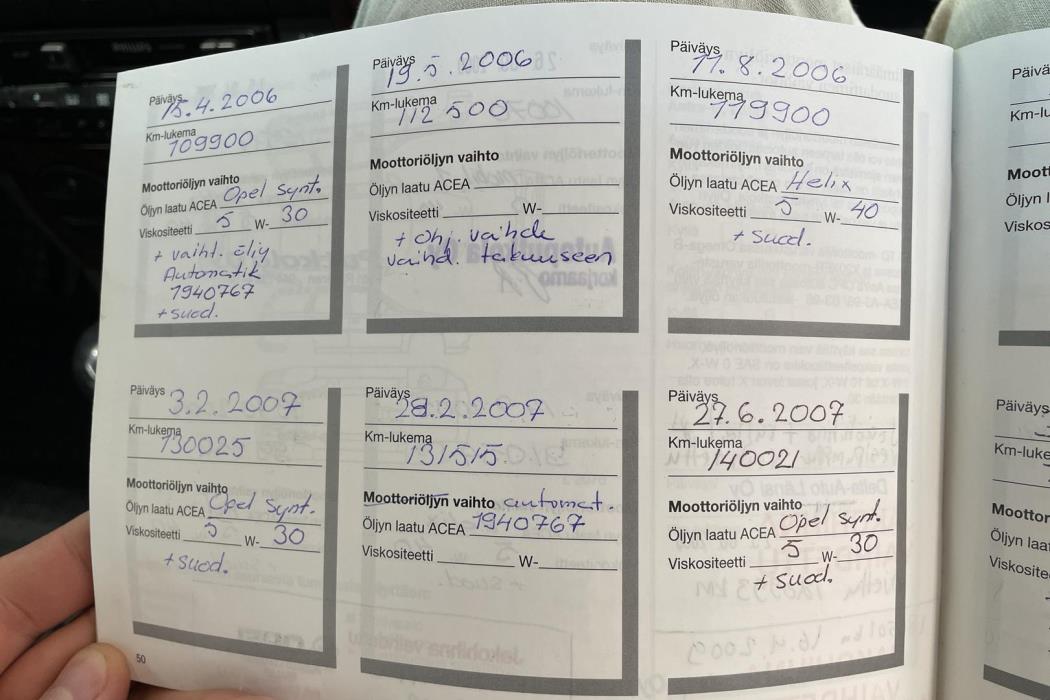 Päiväys 15.4.2006
Km-lukema 109900
Moottoriöljyn vaihto
Öljyn laatu ACEA Opel synt.
Viskositeetti 5 W- 30
+ vaiht. öljy
Automatik
1940767
+ suod.
Päiväys 19.5.2006
Km-lukema 112 500
Moottoriöljyn vaihto
Öljyn laatu ACEA
Viskositeetti W-
+ Ohj. vaihde
vaihd. takuuseen
Päiväys 11.8.2006
Km-lukema 119900
Moottoriöljyn vaihto
Öljyn laatu ACEA Helix
Viskositeetti 5 W- 40
+ suod.
Päiväys 3.2.2007
Km-lukema 130025
Moottoriöljyn vaihto
Öljyn laatu ACEA Opel synt.
Viskositeetti 5 W- 30
+ suod.
Päiväys 28.2.2007
Km-lukema 131515
Moottoriöljyn vaihto automat.
Öljyn laatu ACEA 1940767
Viskositeetti W-
Päiväys 27.6.2007
Km-lukema 140021
Moottoriöljyn vaihto
Öljyn laatu ACEA Opel synt.
Viskositeetti 5 W- 30
+ suod.
50